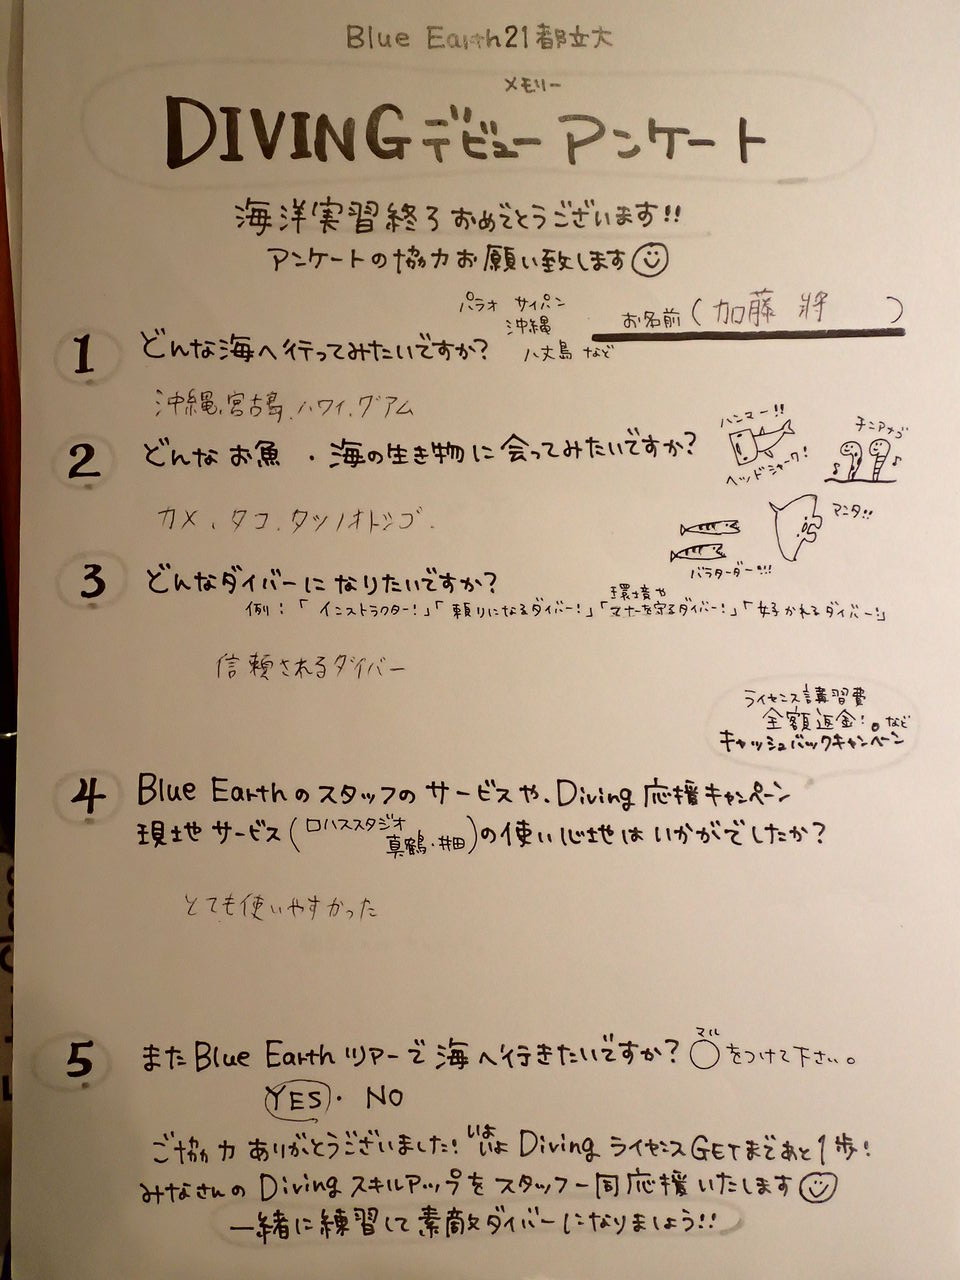 Blue Earth21都立大
メモリー
DIVINGデビューアンケート
海洋実習終了おめでとうございます!!
アンケートの協力お願い致します
お名前(加藤 将)
パラオ サイパン
沖縄
八丈島 など
1 どんな海へ行ってみたいですか?
沖縄、宮古島、ハワイ、グアム
2 どんなお魚・海の生き物に会ってみたいですか?
ハンマー!!
ヘッドシャーク!
チンアナゴ
カメ、タコ、タツノオトシゴ.
マンタ!!
バラクーダー!!!
3 どんなダイバーになりたいですか?
例:「インストラクター!」「頼りになるダイバー!」「環境やマナーを守るダイバー!」「好かれるダイバー!」
信頼されるダイバー
ライセンス講習費
全額返金!。など
キャッシュバックキャンペーン
4 Blue Earthのスタッフのサービスや、Diving応援キャンペーン
現地サービス(ロハススタジオ 真鶴・井田)の使い心地はいかがでしたか?
とても使いやすかった
5 またBlue Earthツアーで海へ行きたいですか?○マルをつけて下さい。
YES・NO
ご協力ありがとうございました!いよいよDivingライセンスGETまであと1歩!
みなさんのDivingスキルアップをスタッフ一同応援いたします
一緒に練習して素敵ダイバーになりましょう!!